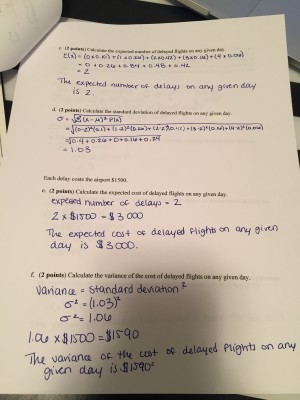 c. (2 points) Calculate the expected number of delayed flights on any given day.
E(x) = (0x0.10) + (1x0.26) + (2x0.42) + (3x0.16) + (4x0.06)
= 0 + 0.26 + 0.84 + 0.48 + 0.42
= 2
The expected number of delays on any given day
is 2.
d. (2 points) Calculate the standard deviation of delayed flights on any given day.
= 1.03
Each delay costs the airport $1500.
e. (2 points) Calculate the expected cost of delayed flights on any given day.
expected number of delays = 2
2 x $1500 = $3000
The expected cost of delayed flights on any given
day is $3000.
f. (2 points) Calculate the variance of the cost of delayed flights on any given day.
Variance = standard deviation ²
σ² = (1.03)²
σ² = 1.06
1.06 x $1500 = $1590
The variance of the cost of delayed flights on any
given day is $1590²